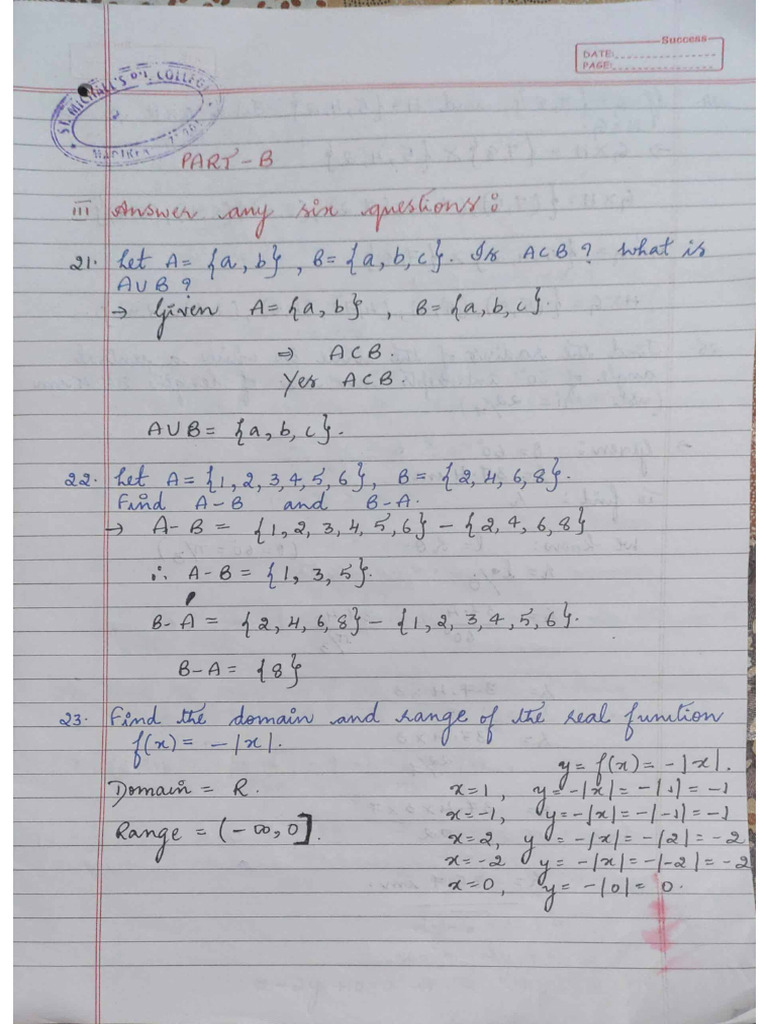 Success
DATE:
PAGE:
ST. MICHAEL'S P.U. COLLEGE
PART-B
III Answer any six questions:
21. Let A = {a, b}, B = {a, b, c}. Is A⊂B? What is
A∪B?
→ Given A = {a, b}, B = {a, b, c}.
⇒ A⊂B.
Yes A⊂B.
A∪B = {a, b, c}.
22. Let A = {1, 2, 3, 4, 5, 6}, B = {2, 4, 6, 8}.
Find A-B and B-A.
→ A-B = {1, 2, 3, 4, 5, 6} - {2, 4, 6, 8}
∴ A-B = {1, 3, 5}.
B-A = {2, 4, 6, 8} - {1, 2, 3, 4, 5, 6}.
B-A = {8}
23. Find the domain and range of the real funtion
f(x) = -|x|.
Domain = R.
Range = (-∞, 0].
y = f(x) = -|x|.
x=1, y = -|x| = -|1| = -1
x=-1, y = -|x| = -|-1| = -1
x=2, y = -|x| = -|2| = -2
x=-2 y = -|x| = -|-2| = -2
x=0, y = -|0| = 0.